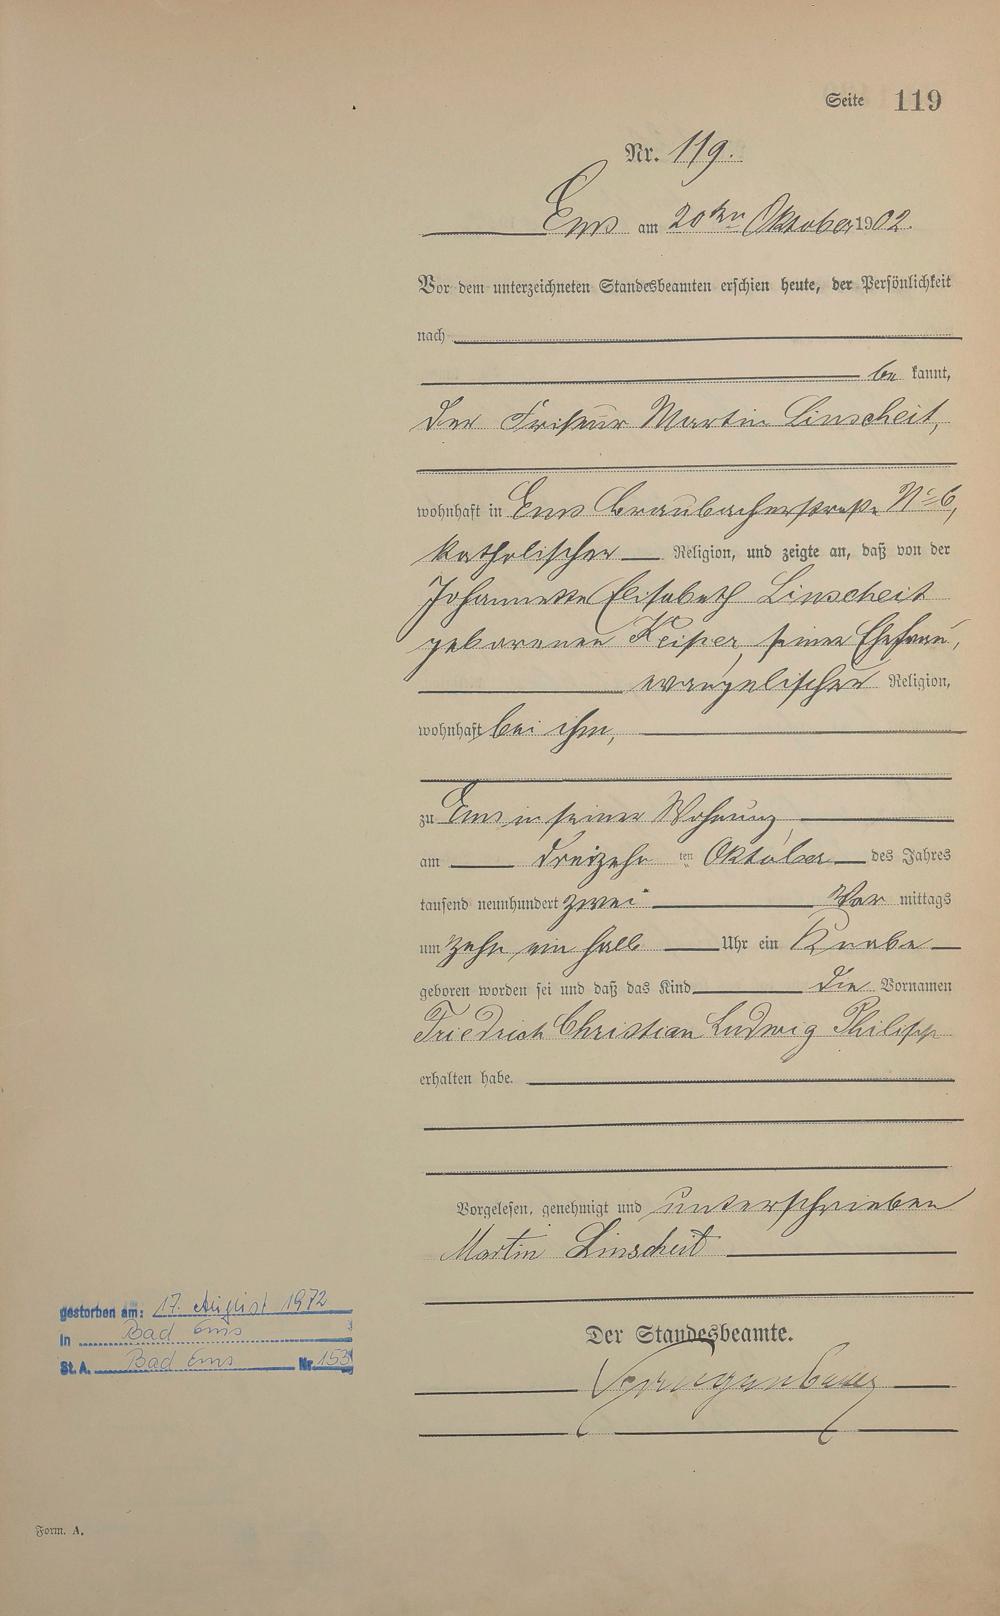 Seite 119
Nr. 119.
Ems am 20ten Oktober 1902.
Vor dem unterzeichneten Standesbeamten erschien heute, der Persönlichkeit
nach
be kannt,
der Friseur Martin Linscheit,
wohnhaft in Ems Braubacherstraße No 6,
katholischer Religion, und zeigte an, daß von der
Johannette Elisabeth Linscheit
geborenen Keiper, seiner Ehefrau,
evangelischer Religion,
wohnhaft bei ihm,
zu Ems in seiner Wohnung,
am dreizehn ten Oktober des Jahres
tausend neunhundert zwei Vor mittags
um zehn ein halb Uhr ein Knabe
geboren worden sei und daß das Kind die Vornamen
Friedrich Christian Ludwig Philipp
erhalten habe.
Vorgelesen, genehmigt und unterschrieben
Martin Linscheit
Der Standesbeamte.
gestorben am: 17. August 1972
in Bad Ems
St. A. Bad Ems Nr. 153
Form. A.